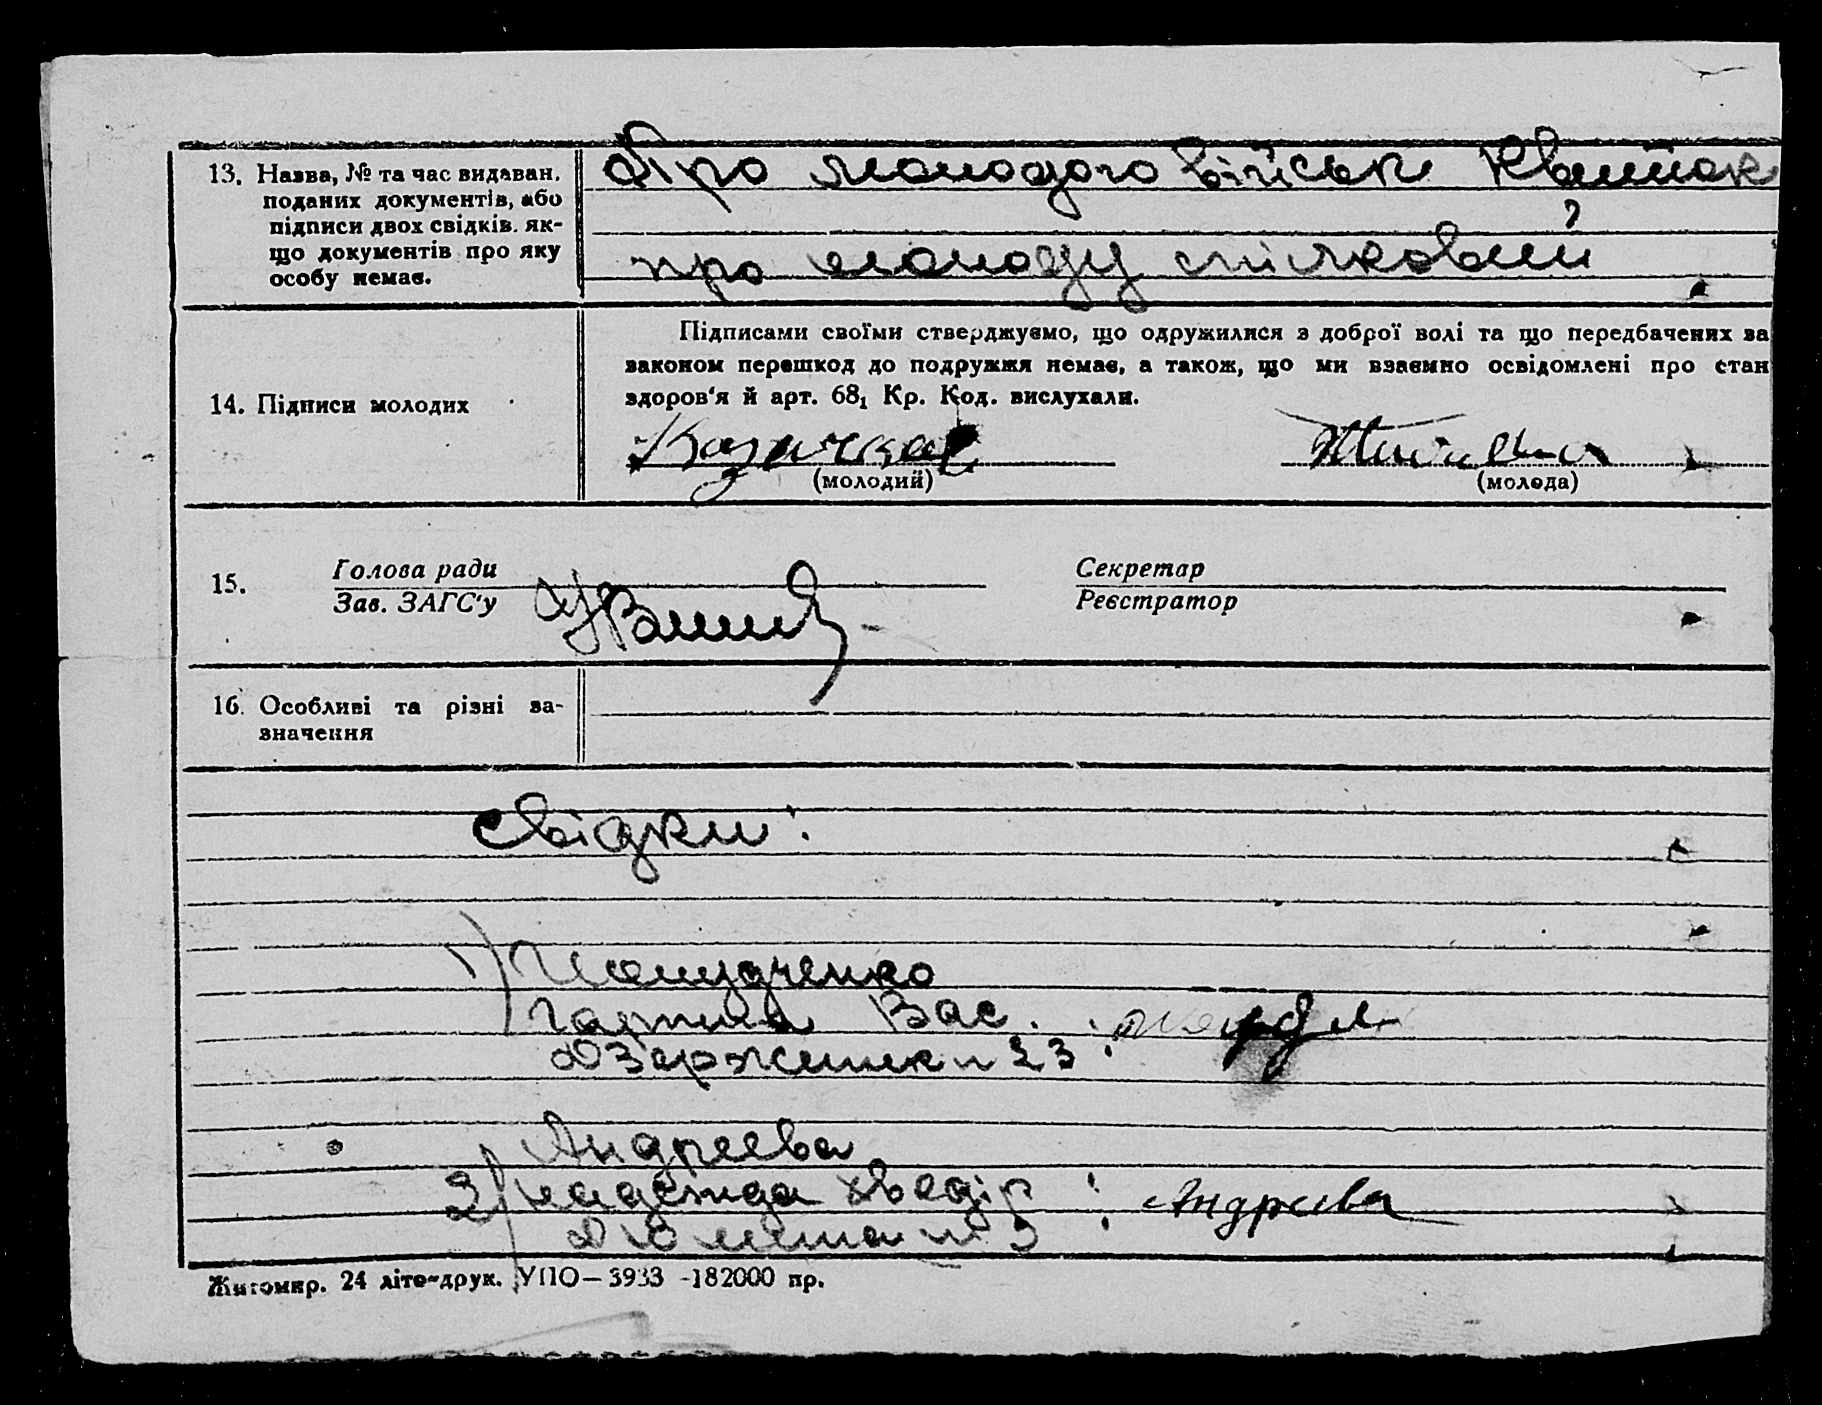 13. Назва, № та час видаван.
поданих документів, або
підписи двох свідків. як-
що документів про яку
особу немає.
Про молодого військ квиток
про молоду спілковий
14. Підписи молодих
Підписами своїми стверджуємо, що одружилися з доброї волі та що передбачених за
законом перешкод до подружжя немає, а також, що ми взаємно освідомлені про стан
здоров'я й арт. 68₁ Кр. Код. вислухали.
(молодий)
(молода)
15.
Голова ради
Зав. ЗАГС'у
Секретар
Реєстратор
16. Особливі та різні за-
значення
Свідки:
1)
Вас.
Дзержинки 23
Андреева
2) надежда хведір : Андреева
3
Житомир. 24 літо-друк. УПО—3933 -182000 пр.